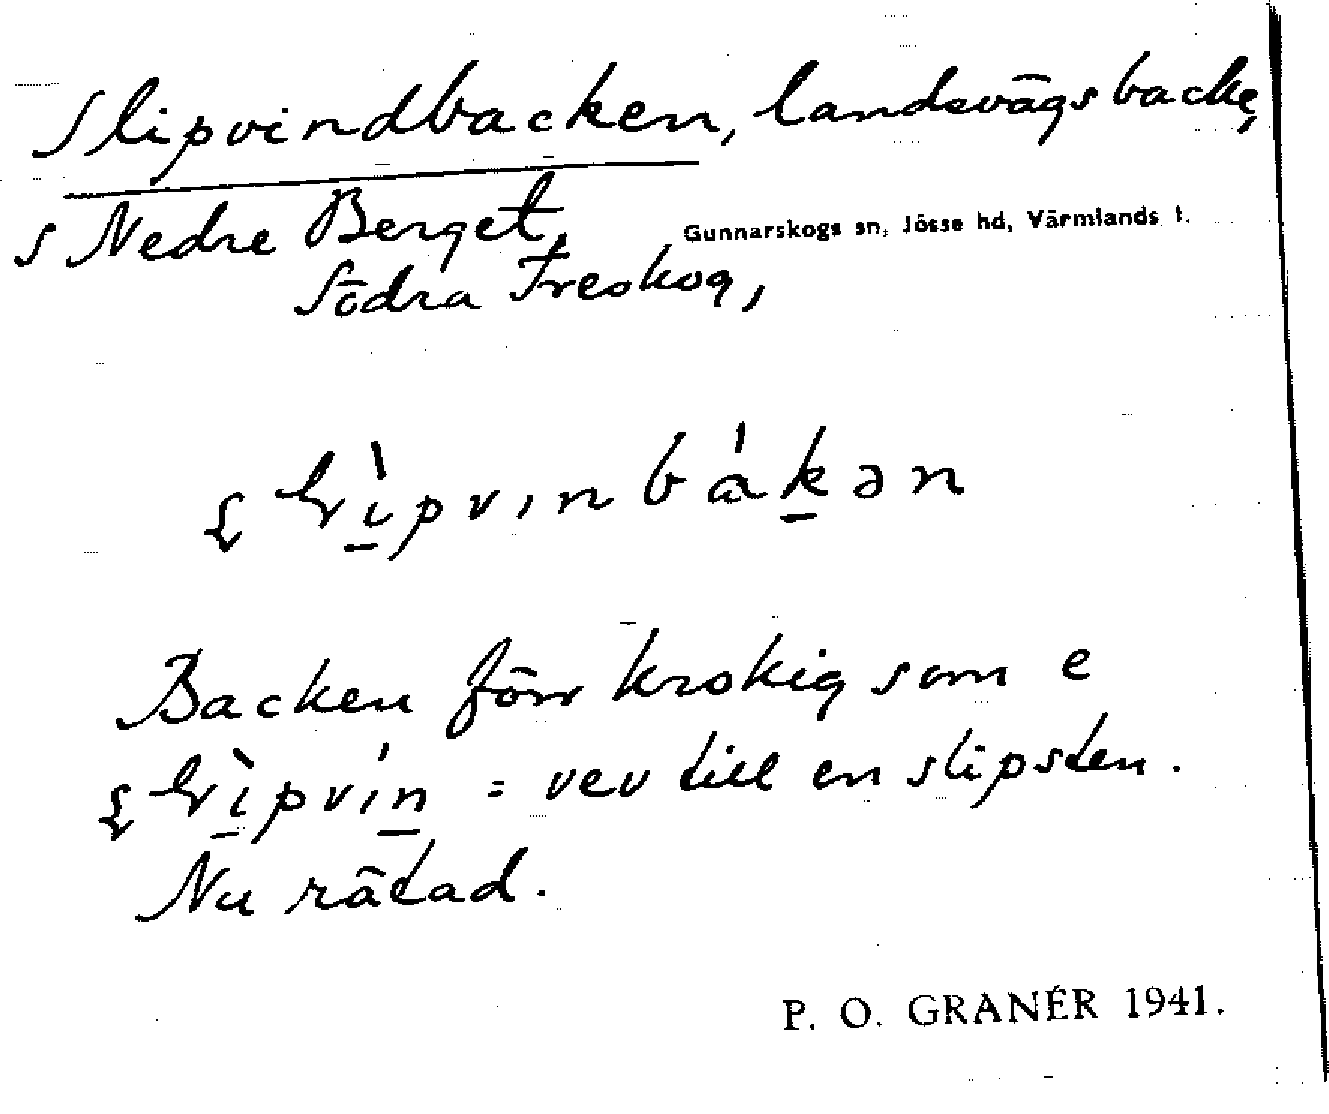 Slipvindbacken, landsvägsbacke,
s Nedre Berget, Gunnarskogs sn, Jösse hd, Värmlands l.
Södra Treskog,
Backen förr krokig som e
= vev till en slipsten.
Nu rätad.
P. O. GRANÉR 1941.